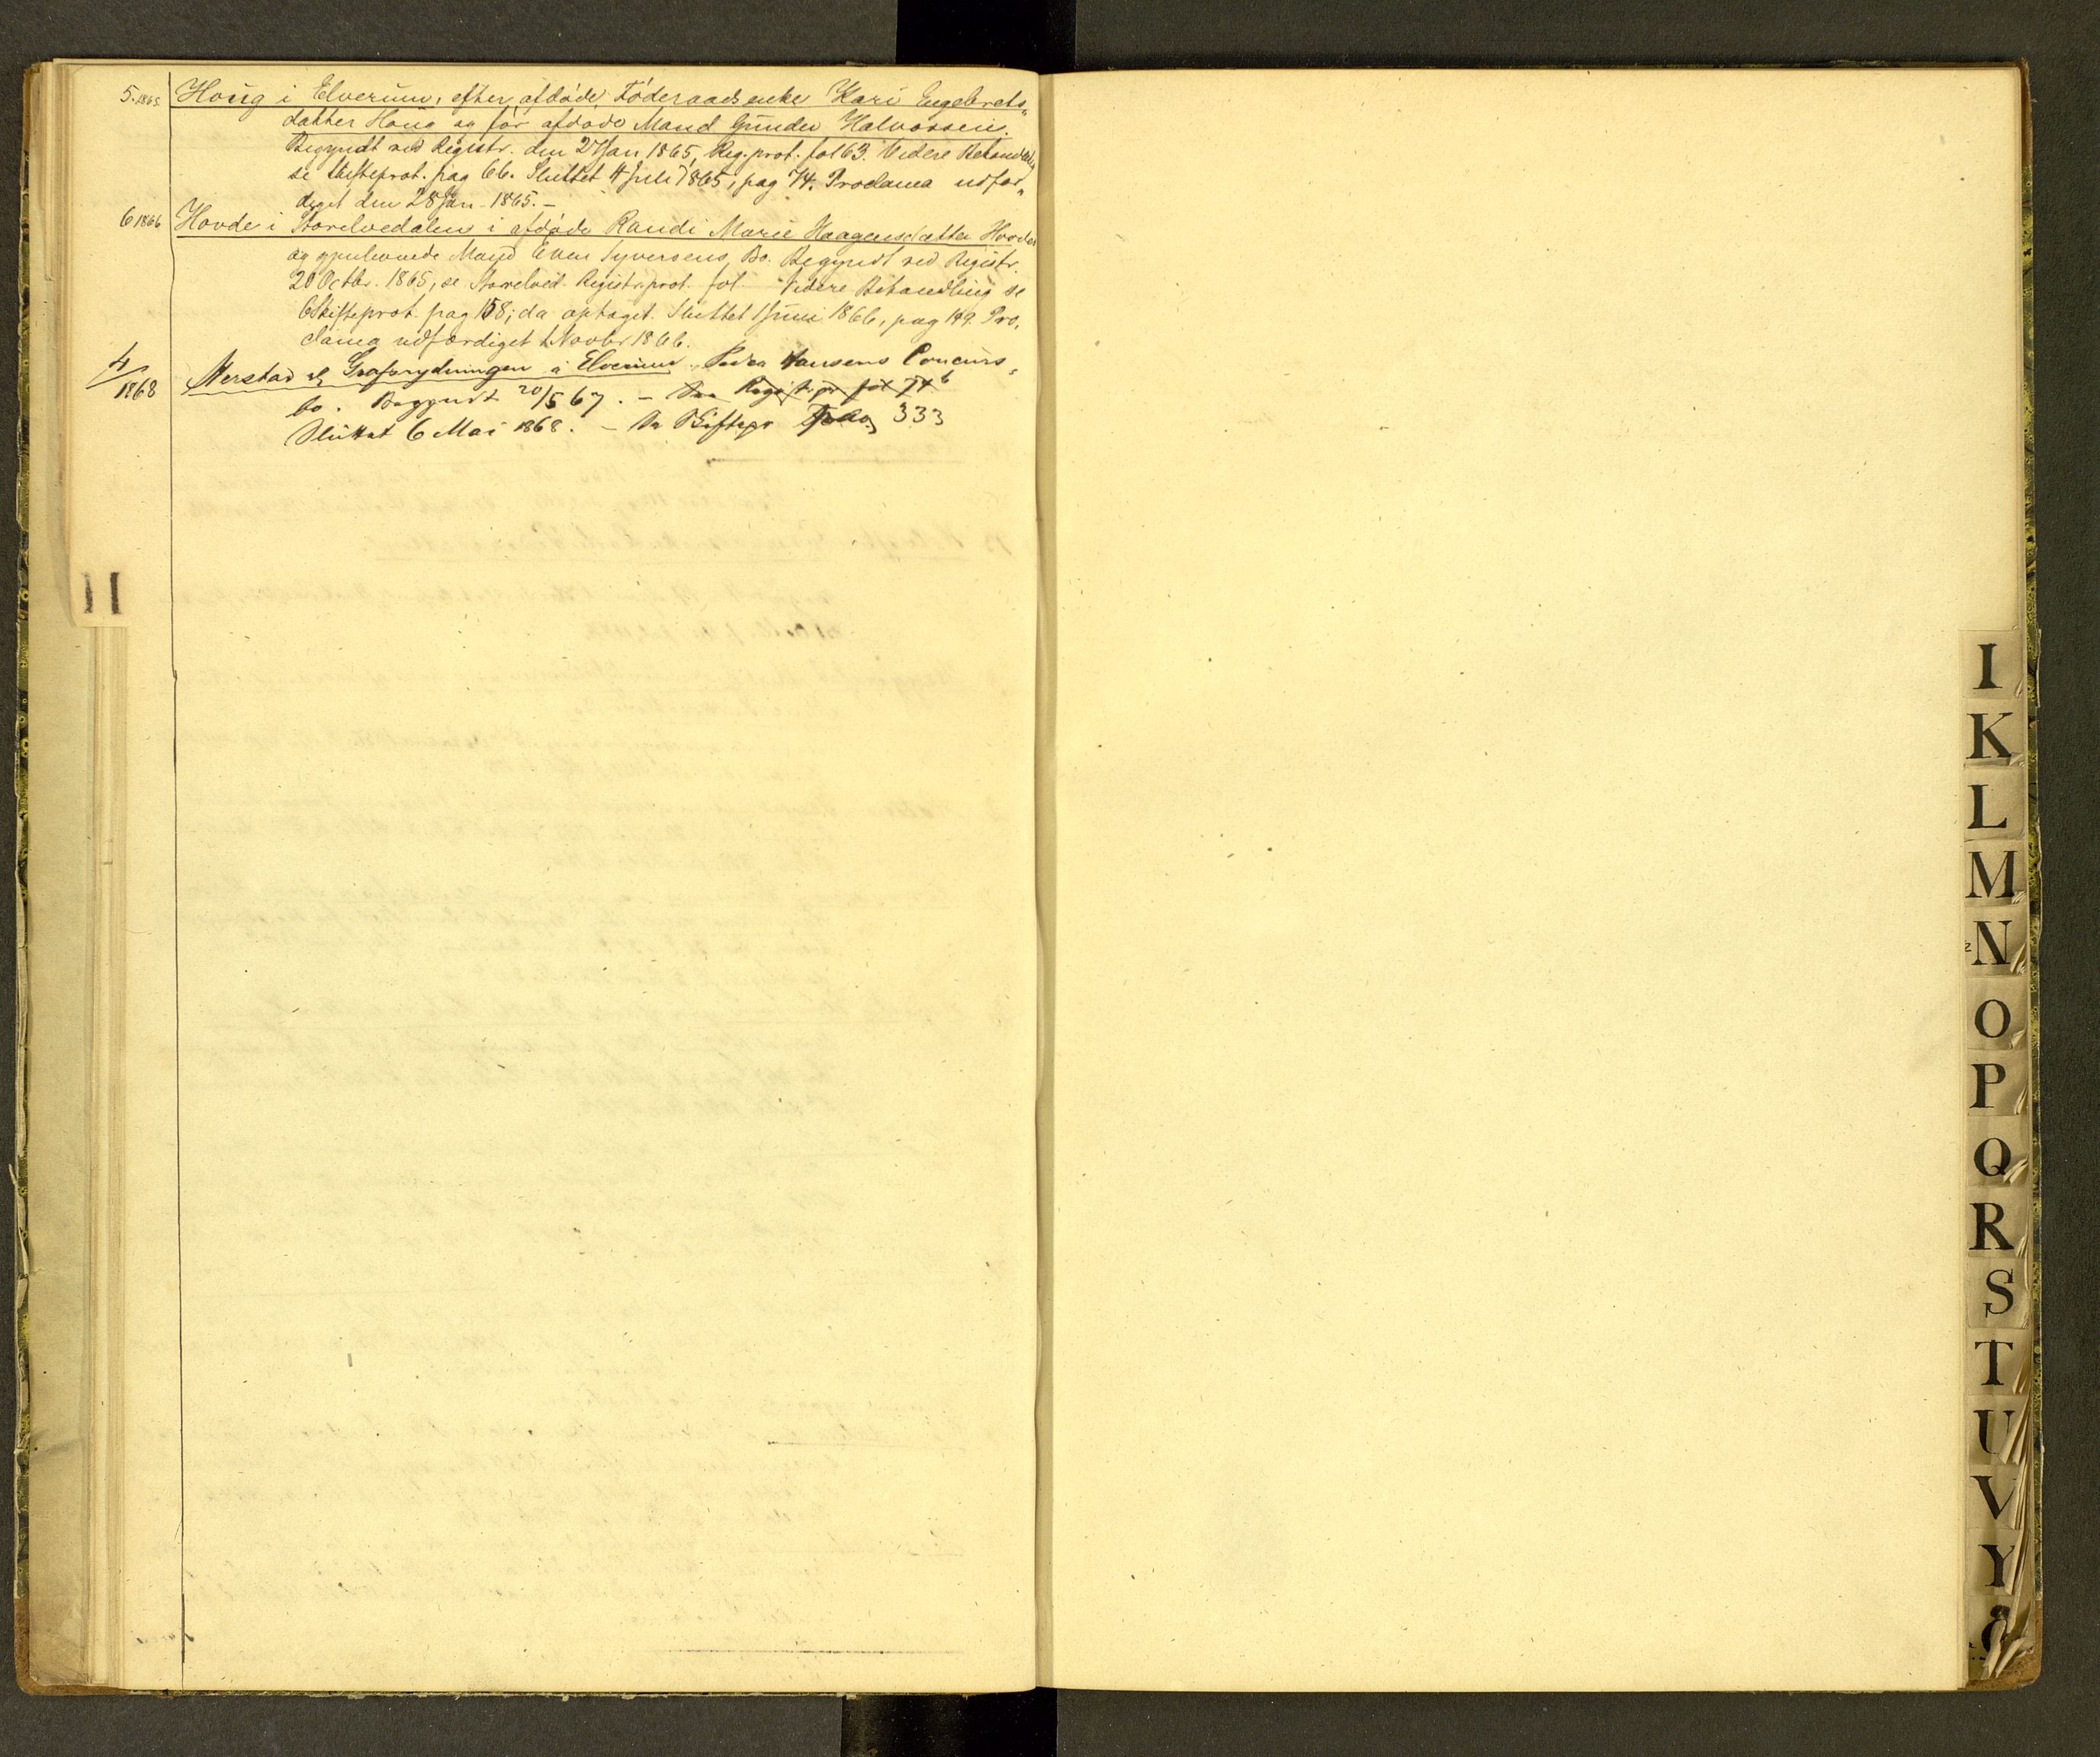 5. 1865. Houg i Elverum, efter afdøde Føderaadsenke Kari Engebrets„
datter Houg og før afdøde Mand Gunder Halvorsen.
Begyndt ved Registr. den 27 Jan 1865, Reg. prot. fol 63. Videre Behandling
se Skifteprot. pag 66. Sluttet 4 Juli 1865, pag 74. Proclama udfær„
diget den 28 Jan. 1865. –
6 1866 Hovde i Storelvedalen i afdøde Randi Marie Haagensdatter Hovde
og gjenlevende Mand Even Syversens Bo. Begyndt ved Registr.
20 Octbr. 1865, se Storelved. Registr. prot. fol. Videre Behandling se
Skifteprot. pag 158; da optaget. Sluttet 1 Juni 1866, pag 149. Pro„
clama udfærdiget 1 Novbr 1866.
4/1868 Grafsrydningen i Elverum, Peder Hansens Concurs„
bo. Begyndt 20/5 67. – Registr. pr fol 74 b
Sluttet 6 Mai 1868. – Se Skiftepr 333
H
I
K
L
M
N
O
P
Q
R
S
T
U
V
Y